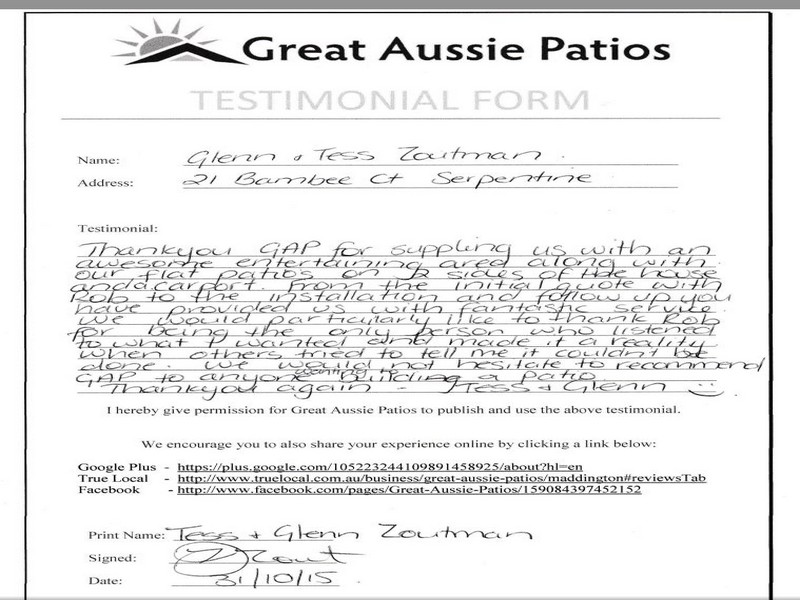 Great Aussie Patios
TESTIMONIAL FORM
Name: Glenn & Tess Zoutman.
Address: 21 Bambee Ct Serpentine
Testimonial:
Thankyou GAP for suppling us with an
awesome entertaining area along with
our flat patios on 2 sides of the house
and a carport. From the initial quote with
Rob to the installation and follow up you
have provided us with fantastic service.
We would particularly like to thank Rob
for being the only person who listened
to what I wanted and made it a reality
when others tried to tell me it couldnt be
done. We would not hesitate to recommend
GAP to anyone wanting to building a patio
Thankyou again - Tess & Glenn :)
I hereby give permission for Great Aussie Patios to publish and use the above testimonial.
We encourage you to also share your experience online by clicking a link below:
Google Plus - https://plus.google.com/105223244109891458925/about?hl=en
True Local - http://www.truelocal.com.au/business/great-aussie-patios/maddington#reviewsTab
Facebook - http://www.facebook.com/pages/Great-Aussie-Patios/159084397452152
Print Name: Tess & Glenn Zoutman
Signed: Zout
Date: 31/10/15.